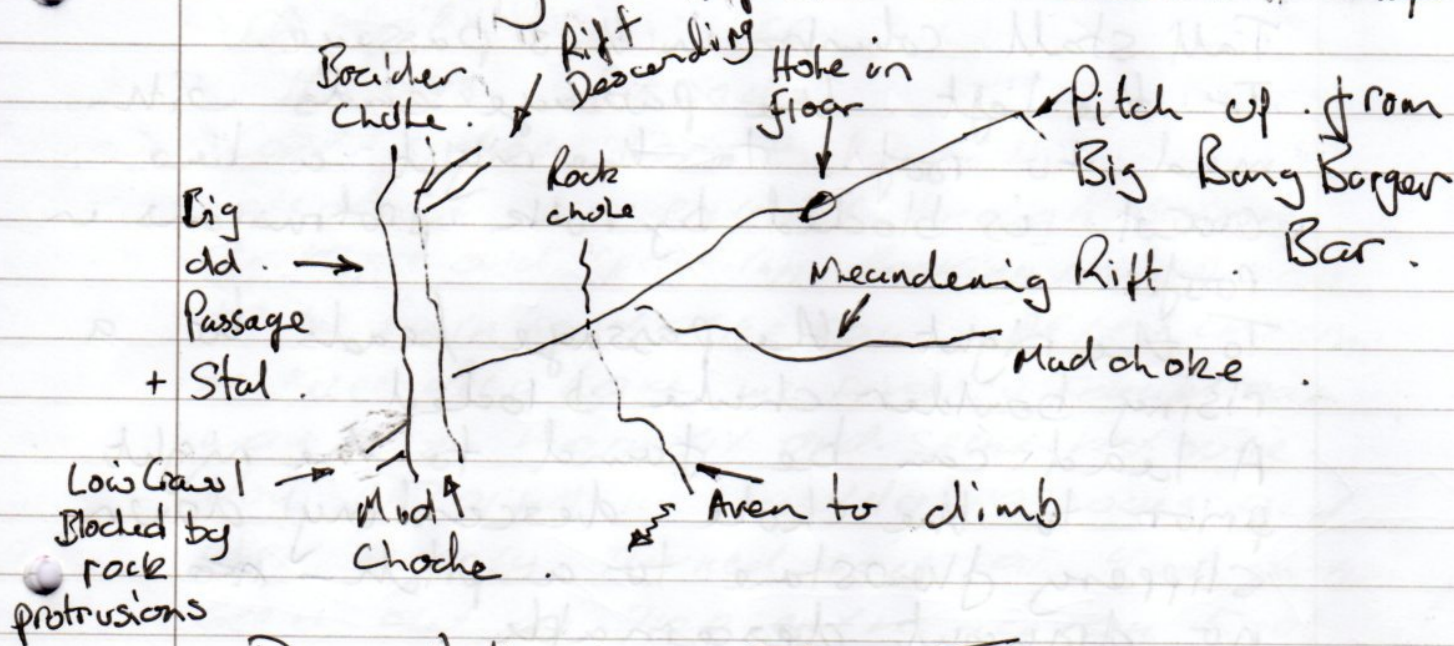 Boulder
Choke.
Rift
Descending
Hole in
floor
Pitch up from
Big Bang Burger
Bar.
Big
old.
Passage
+ Stal.
Rock
choke
Meandering Rift
Mud choke.
Low Crawl
Blocked by
rock
protrusions
Mud
Choche.
Aven to climb